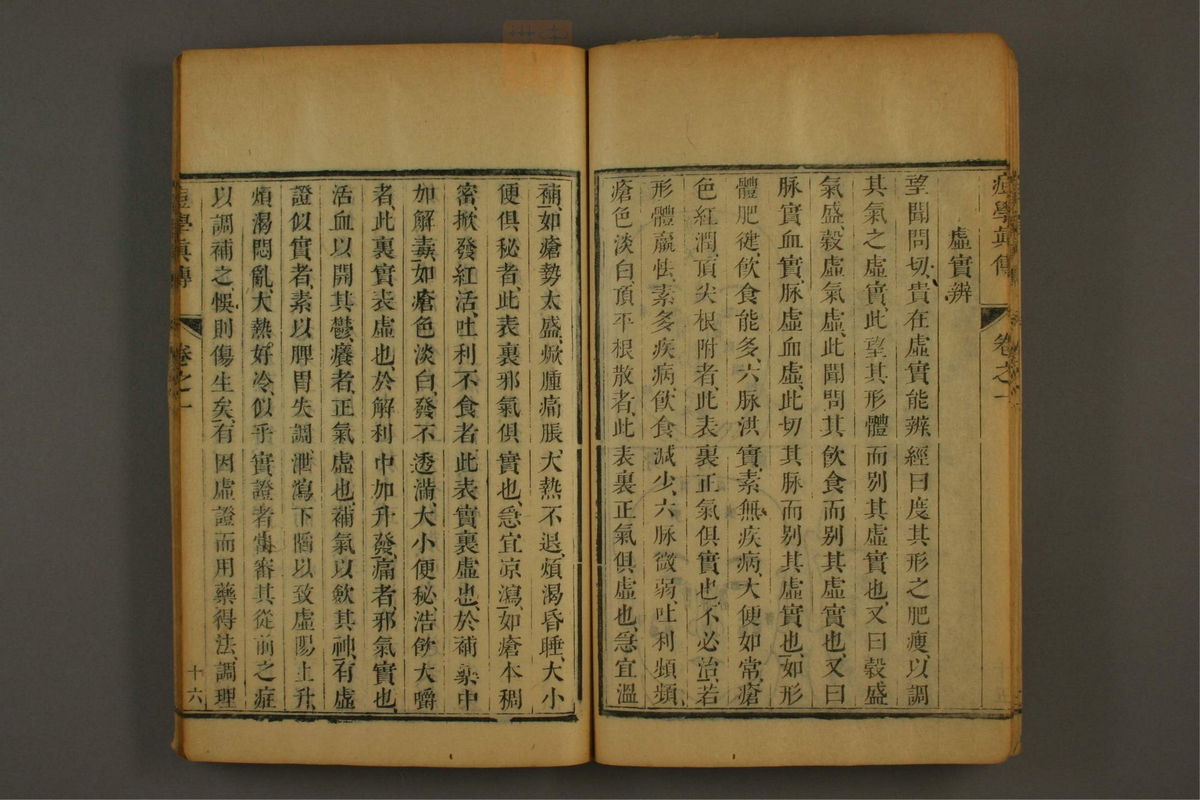 痘學眞傳 卷之一
虛實辨
望聞問切、貴在虛實能辨經曰度其形之肥瘦、以調
其氣之虛實、此望其形體而别其虛實也、又曰穀盛
氣盛、穀虛氣虛、此聞問其飲食而别其虛實也、又曰
脉實血實、脉虛血虛、此切其脉而别其虛實也、如形
體肥健、飲食能多、六脉洪實、素無疾病、大便如常、瘡
色紅潤、頂尖根附者、此表裏正氣俱實也、不必治、若
形體羸怯、素多疾病、飲食減少、六脉微弱、吐利頻頻、
瘡色淡白、頂平根散者、此表裏正氣俱虛也、急宜溫
補、如瘡勢太盛、焮腫痛脹、大熱不退、煩渴昏睡、大小
便俱秘者、此表裏邪氣俱實也、急宜凉瀉、如瘡本稠
密焮發紅活、吐利不食者、此表實裏虛也、於補藥中
加解毒、如瘡色淡白、發不透滿、大小便秘、浩飲大嚼
者、此裏實表虛也、於解利中加升發、痛者、邪氣實也、
活血以開其鬱、癢者、正氣虛也、補氣以歛其神、有虛
證似實者、素以脾胃失調泄瀉下陷以致虛陽上升、
煩渴悶亂、大熱好冷、似乎實證者、當審其從前之症
以調補之、悞則傷生矣、有因虛證而用藥得法、調理
痘學眞傳 卷之一 十六